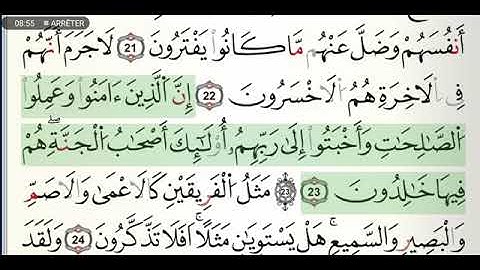 08:55 ■ ARRÊTER
أَنفُسَهُمْ وَضَلَّ عَنْهُم مَّا كَانُوا۟ يَفْتَرُونَ 21 لَا جَرَمَ أَنَّهُمْ
فِى ٱلَاخِرَةِ هُمُ ٱلَاخْسَرُونَ 22 إِنَّ ٱلَّذِينَ ءَامَنُوا۟ وَعَمِلُوا۟
ٱلصَّٰلِحَٰتِ وَأَخْبَتُوٓا۟ إِلَىٰ رَبِّهِمُۥٓ أُو۟لَٰٓئِكَ أَصْحَٰبُ ٱلْجَنَّةِ هُمْ
فِيهَا خَٰلِدُونَ 23 ۞ مَثَلُ ٱلْفَرِيقَيْنِ كَالَاعْمَىٰ وَالَاصَمِّ
وَٱلْبَصِيرِ وَٱلسَّمِيعِ هَلْ يَسْتَوِيَٰنِ مَثَلًا أَفَلَا تَذَّكَّرُونَ 24 وَلَقَدَ